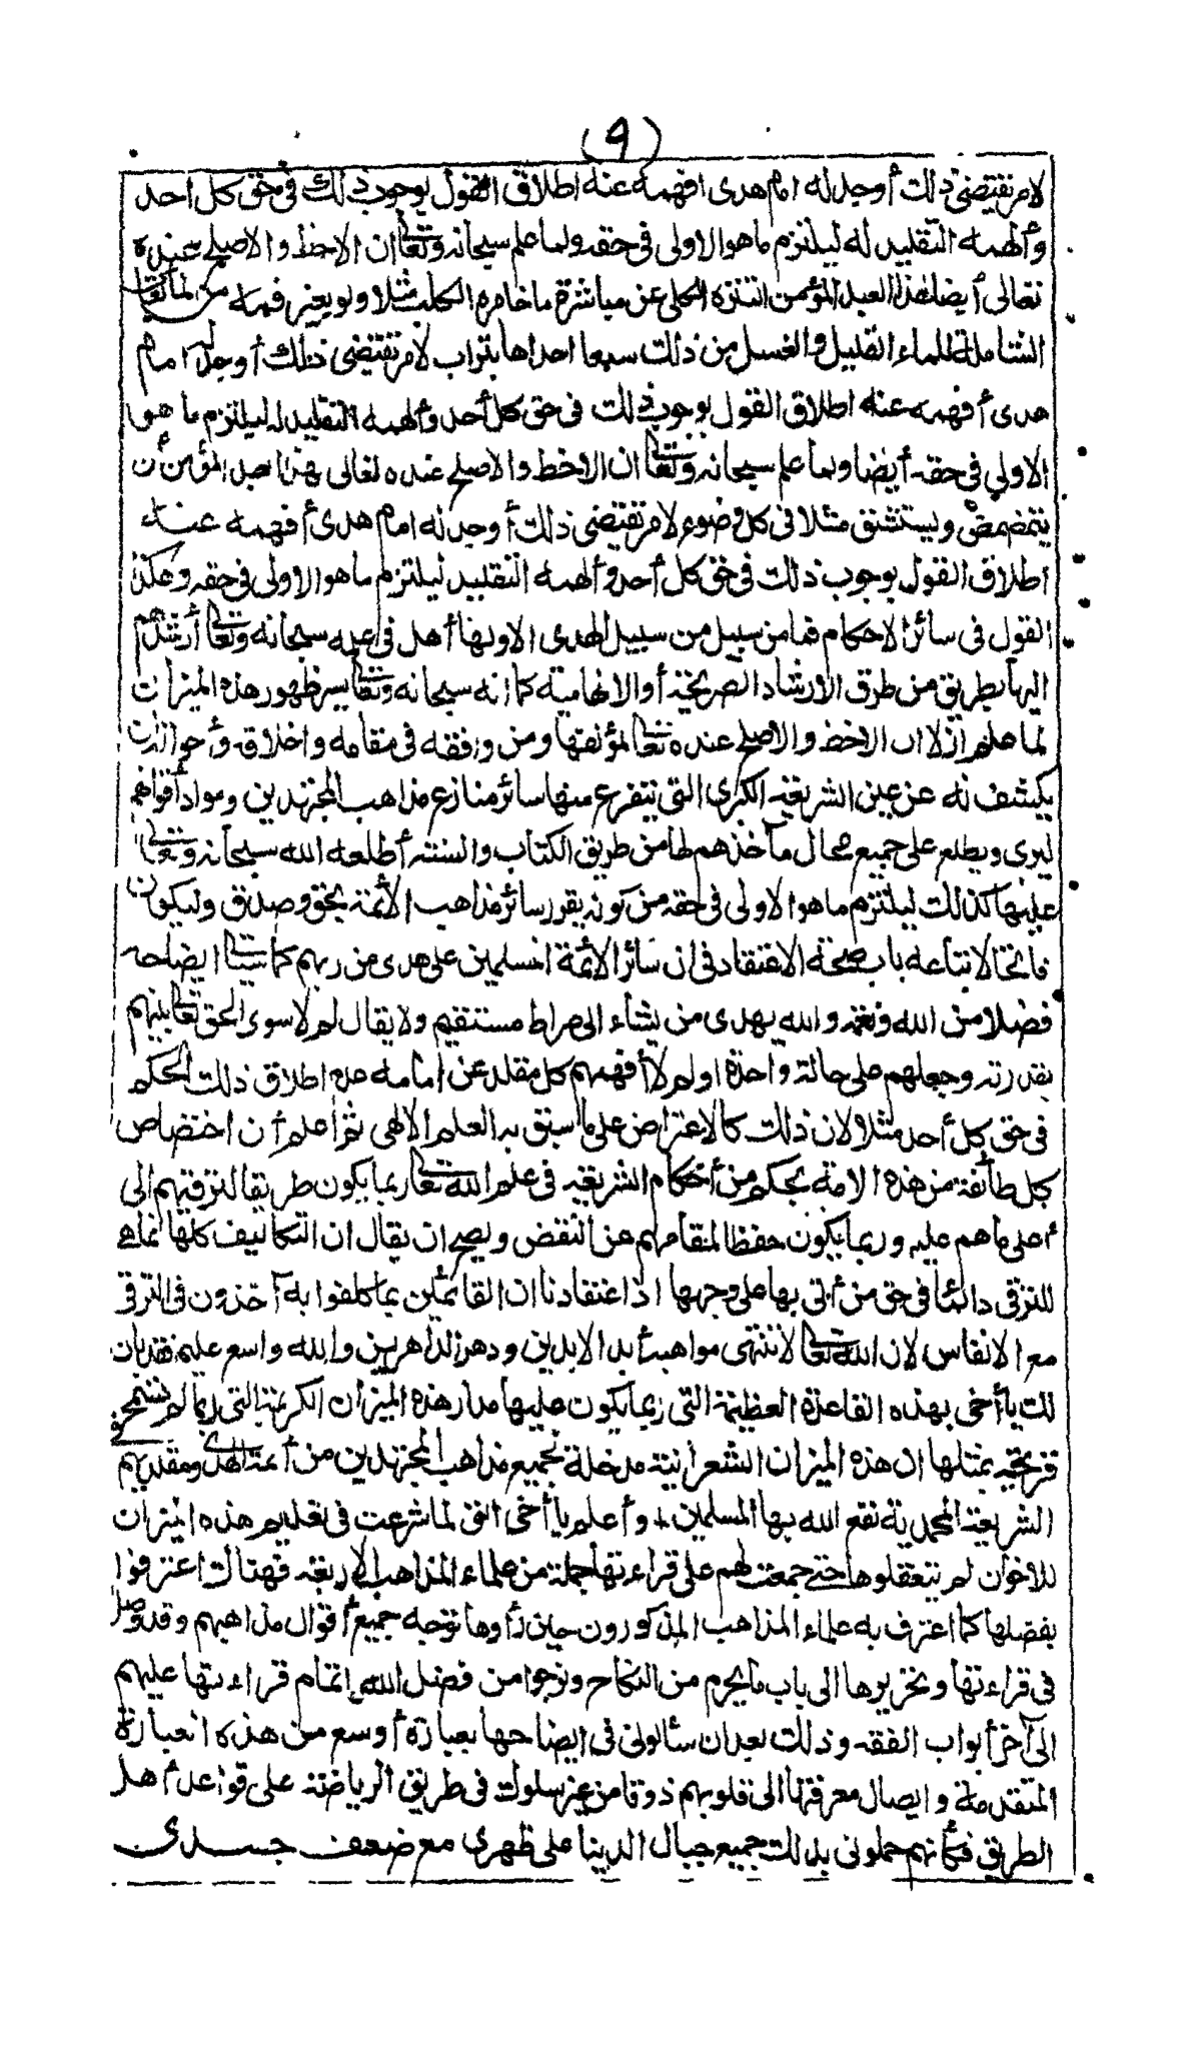 (٩)
لامر تقتضى ذلك أوجد له امام هدى افهمه عنه اطلاق القول بوجوب ذلك فى حق كل احد
وألهمه التقليد له ليلتزم ما هو الاولى فى حقه ولما علم سبحانه وتعالى ان الاحظ والاصلح عنده
تعالى أيضا لهذا العبد المؤمن التنزه الكلى عن مباشرة ما خامره الكلب مثلا ولو بغير فمه من المائعات
الشاملة للماء القليل والغسل من ذلك سبعا احداها بتراب لامر تقتضى ذلك أوجد له امام
هدى أفهمه عنه اطلاق القول بوجوب ذلك فى حق كل أحد وألهمه التقليد له ليلتزم ما هو
الاولى فى حقه أيضا ولما علم سبحانه وتعالى ان الاحظ والاصلح عنده تعالى لهذا العبد المؤمن أن
يتمضمض ويستنشق مثلا فى كل وضوء لامر تقتضى ذلك أوجد له امام هدى أفهمه عنه
اطلاق القول بوجوب ذلك فى حق كل أحد وألهمه التقليد ليلتزم ما هو الاولى فى حقه وهكذا
القول فى سائر الاحكام فما من سبيل من سبيل الهدى الا ولها أهل فى علمه سبحانه وتعالى أرشدهم
اليها بطريق من طرق الارشاد الصريحة أو الالهامية كما انه سبحانه وتعالى يسر ظهور هذه الميزان
لما علم ازلا ان الاحظ والاصلح عنده تعالى لمؤلفها ومن وافقه فى مقامه واخلاقه وأحواله ان
يكشف له عن عين الشريعة الكبرى التى يتفرع منها سائر منازع مذاهب المجتهدين ومواد أقوالهم
ليرى ويطلع على جميع محال مآخذهم لها من طريق الكتاب والسنة أطلعه الله سبحانه وتعالى
عليها كذلك ليلتزم ما هو الاولى فى حقه من كونه يقرر سائر مذاهب الأئمة بحق وصدق وليكون
فاتحا لاتباعه باب صحة الاعتقاد فى ان سائر الأئمة المسلمين على هدى من ربهم كما سيأتى ايضاحه
فضلا من الله ونعمة والله يهدى من يشاء الى صراط مستقيم ولا يقال لم لا سوى الحق تعالى بينهم
بقدرته وجعلهم على حالة واحدة او لم لا أفهمهم كل مقلد عن امامه عدم اطلاق ذلك الحكم
فى حق كل أحد مثلا لان ذلك كالاعتراض على ما سبق به العلم الالهى ثم اعلم أن اختصاص
كل طائفة من هذه الامة بحكم من أحكام الشريعة فى علم الله تعالى ربما يكون طريقا لترقيهم الى
أعلى ما هم عليه وربما يكون حفظا لمقامهم عن النقص ويصح ان يقال ان التكاليف كلها انما هى
للترقى دائما فى حق من أتى بها على وجهها اذ اعتقادنا ان القائمين بما كلفوا به آخذون فى الترقى
مع الانفاس لان الله تعالى لا تنتهى مواهبه أبد الابدين ودهر الداهرين والله واسع عليم فقد بان
لك يا أخى بهذه القاعدة العظيمة التى ربما يكون عليها مدار هذه الميزان الكريمة التى ربما لم تسمح
قريحة بمثلها ان هذه الميزان الشعرانية مدخلة لجميع مذاهب المجتهدين من أئمة الهدى ومقلديهم فى
الشريعة المحمدية نفع الله بها المسلمين + وأعلم يا أخى اننى لما شرعت فى تعليم هذه الميزان
للاخوان لم يتعقلوها حتى جمعت لهم على قراءتها جملة من علماء المذاهب الاربعة فهناك اعترفوا
بفضلها كما اعترف به علماء المذاهب المذكورون حين رأوها توجه جميع أقوال مذاهبهم وقد وصل
فى قراءتها وتحريرها الى باب ما يحرم من النكاح ونرجوا من فضل الله اتمام قراءتها عليهم
الى آخر أبواب الفقه وذلك بعد ان سألونى فى ايضاحها بعبارة أوسع من هذه العبارة
المتقدمة وايصال معرفتها الى قلوبهم ذوقا من غير سلوك فى طريق الرياضة على قواعد أهل
الطريق فكأنهم حملونى بذلك جميع جبال الدنيا على ظهرى مع ضعف جسدى